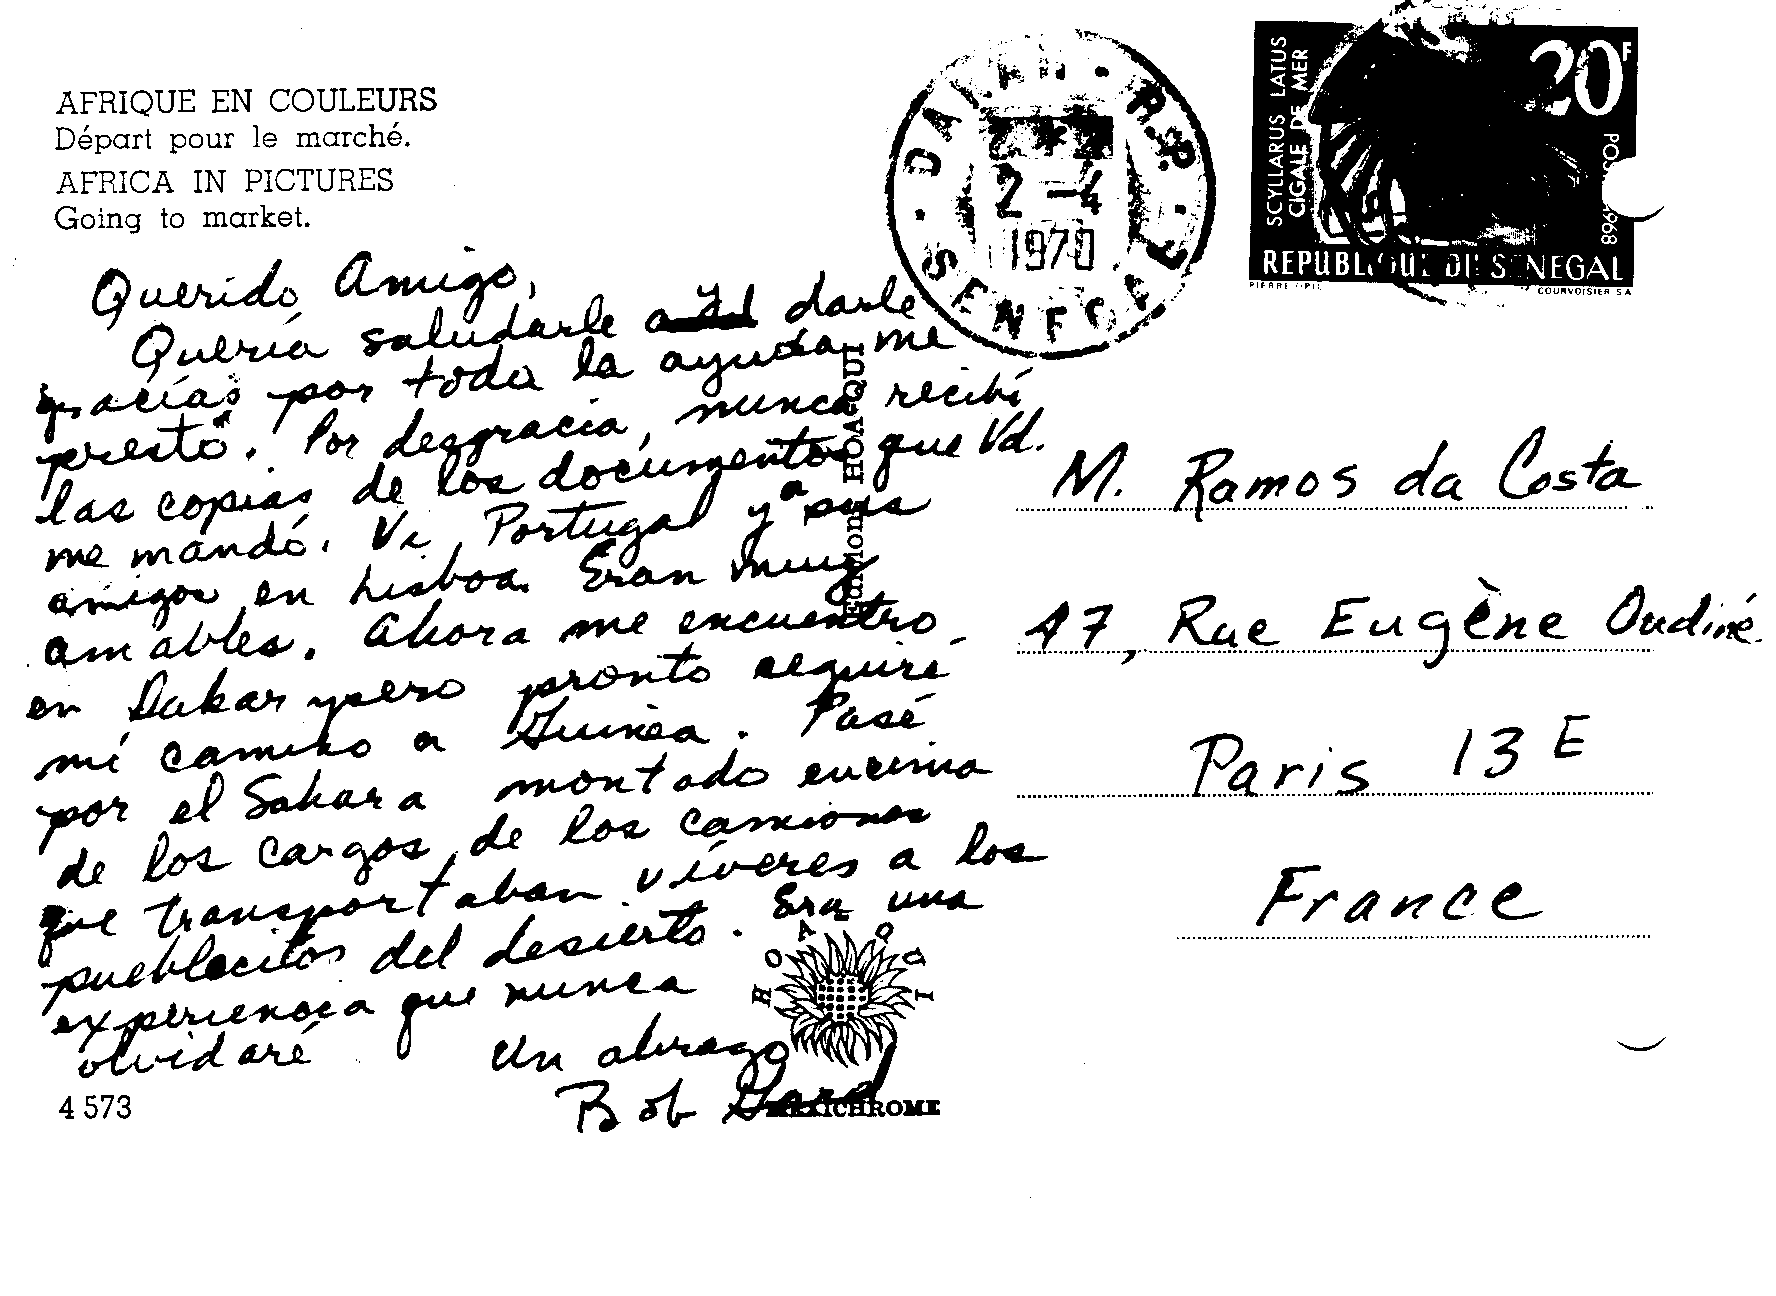 AFRIQUE EN COULEURS
Départ pour le marché.
AFRICA IN PICTURES
Going to market.
Querido Amigo,
Quería saludarle y darle
gracias por toda la ayuda me
prestó. Por desgracia, nunca recibí
las copias de los documentos que Vd.
me mandó. Vi Portugal y a sus
amigos en Lisboa. Eran muy
amables. Ahora me encuentro
en Dakar pero pronto seguiré
mi camino a Guinea. Pasé
por el Sahara montado encima
de los cargos de los camiones
que transportaban víveres a los
pueblecitos del desierto. Era una
experiencia que nunca
olvidaré
Un abrazo
Bob
4 573
MEXICHROME
Editions HOA-QUI
HOA QUI
DAKAR R.P.
2 -4
1970
SENEGAL
SCYLLARUS LATUS
CIGALE DE MER
20F
POSTES 1968
REPUBLIQUE DU SENEGAL
COURVOISIER S.A
M. Ramos da Costa
47, Rue Eugène Oudiné
Paris 13E
France